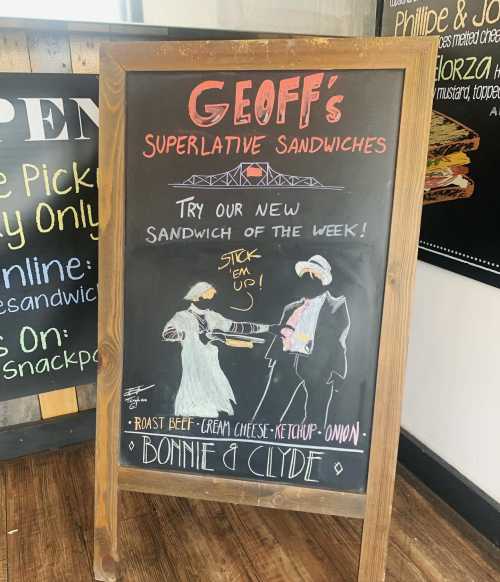 GEOFF's
SUPERLATIVE SANDWICHES
TRY OUR NEW
SANDWICH OF THE WEEK!
STICK
'EM
UP!
• ROAST BEEF • CREAM CHEESE • KETCHUP • ONION •
BONNIE & CLYDE
PEN
e Pick
y Only
nline:
esandwic
s On:
snackpa
Phillipe & Jo
ces melted chee
lorza
mustard, topped